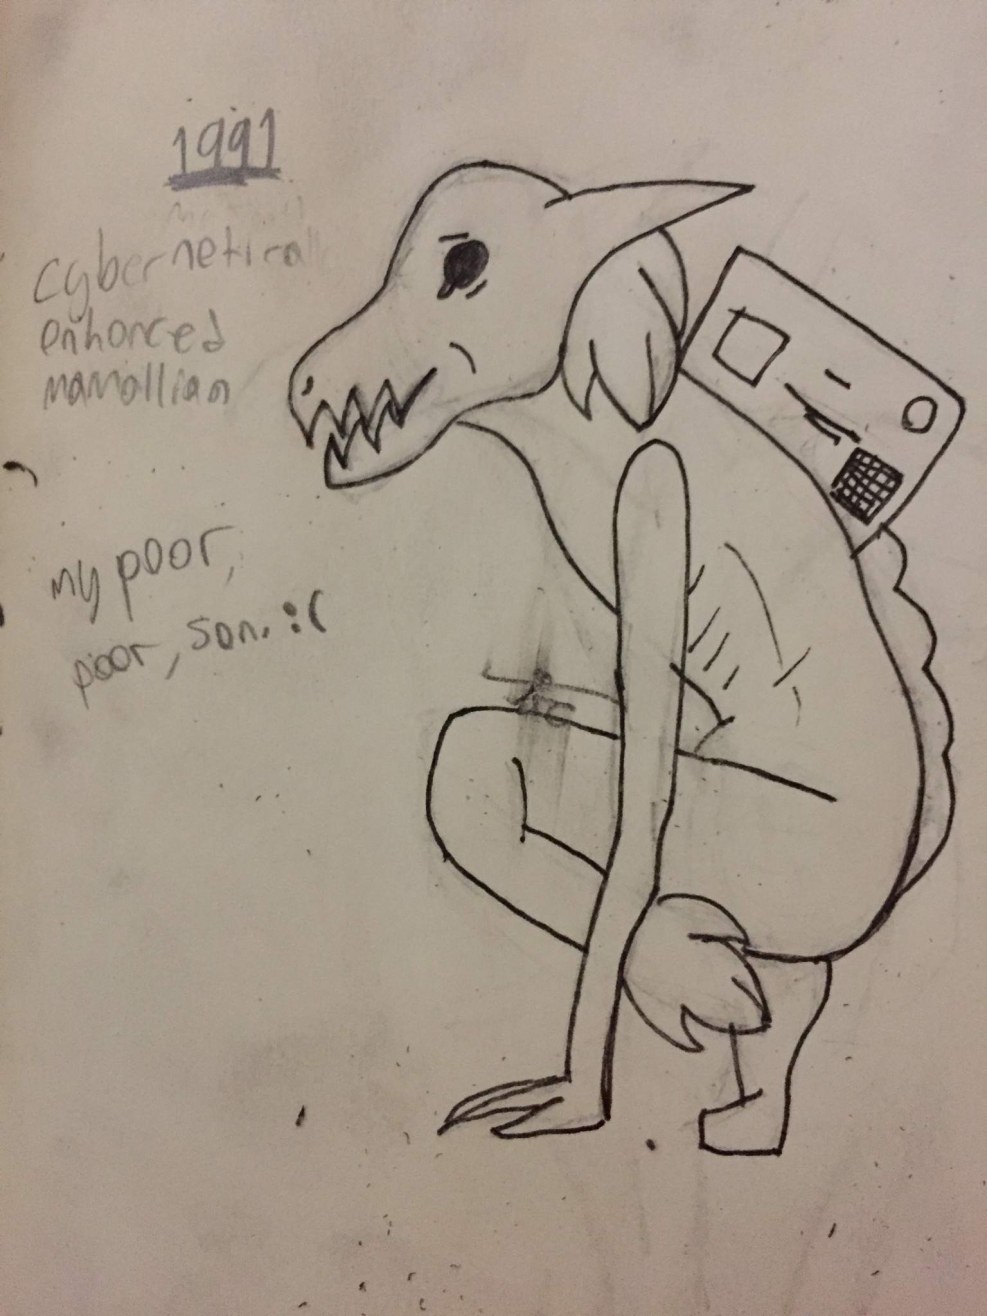 1991
cybernetical
enhanced
mamallian
my poor,
poor, son. :(